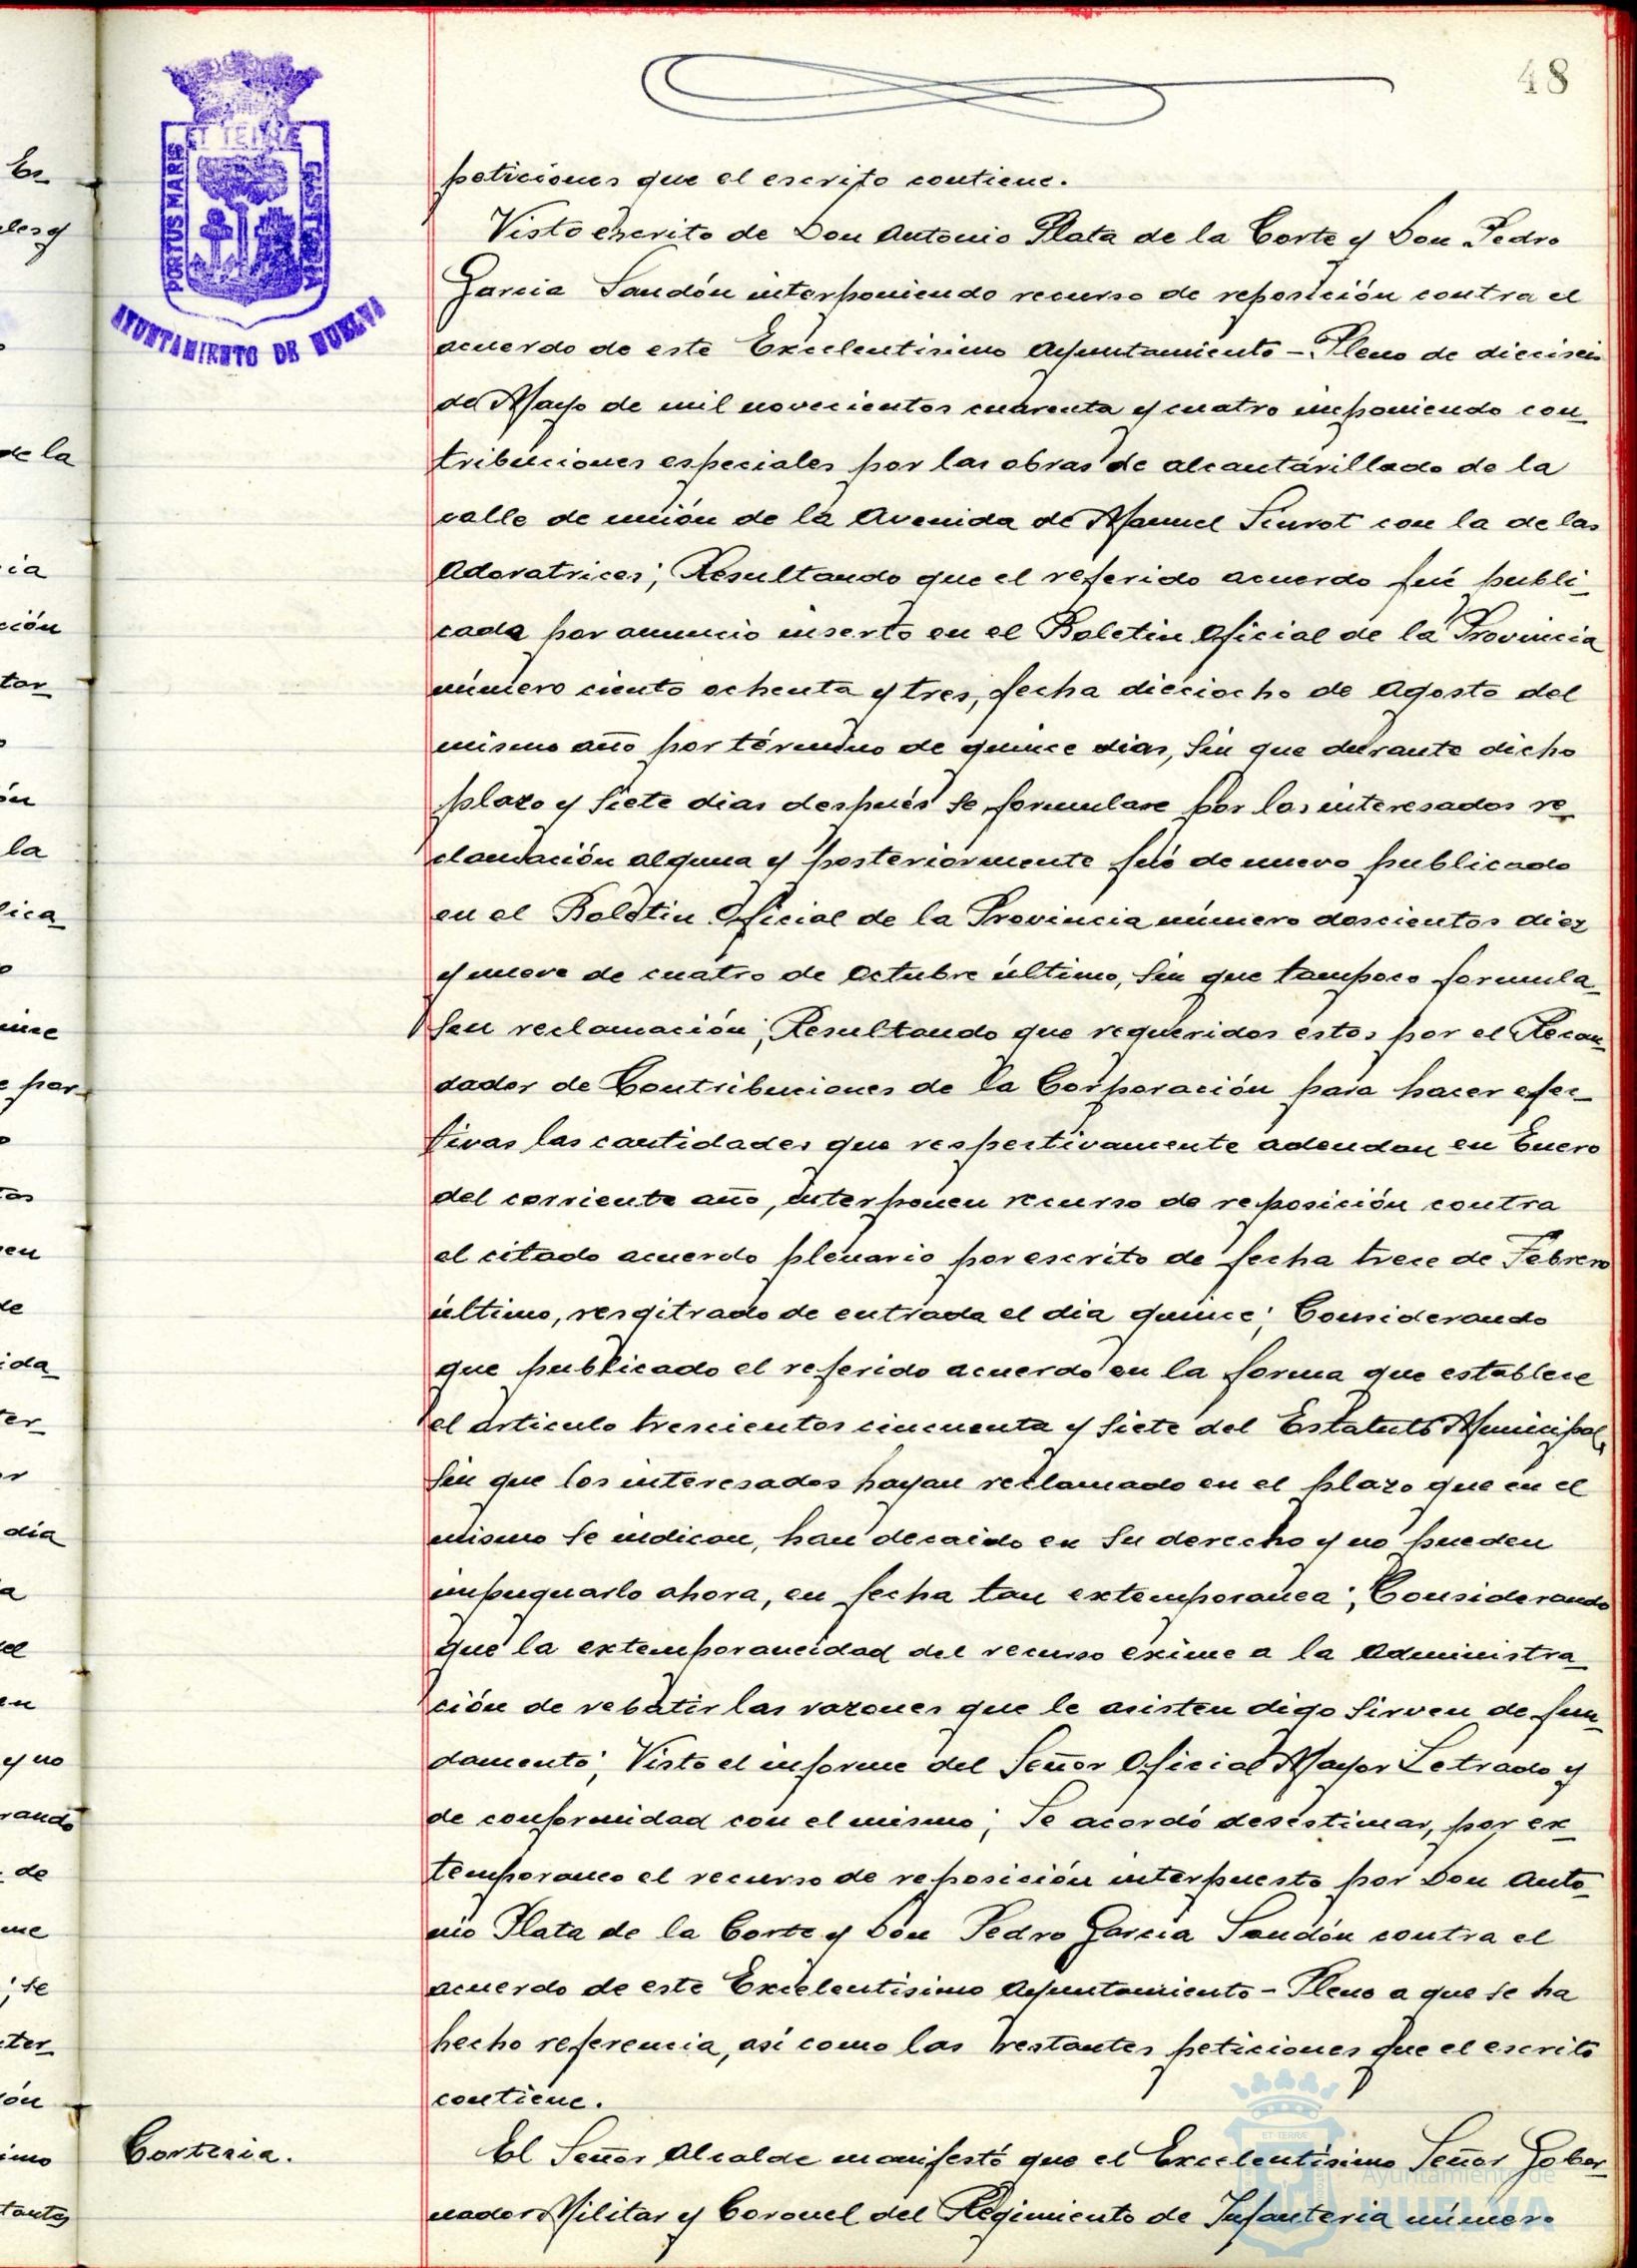 48
PORTUS MARIS
ET TERRÆ
CUSTODIA
AYUNTAMIENTO DE HUELVA
peticiones que el escrito contiene.
Visto escrito de Don Antonio Plata de la Corte y Don Pedro
Garcia Sandón interponiendo recurso de reposición contra el
acuerdo de este Excelentisimo Ayuntamiento - Pleno de dieciseis
de Mayo de mil novecientos cuarenta y cuatro imponiendo con_
tribuciones especiales por las obras de alcantarillado de la
calle de unión de la Avenida de Manuel Siurot con la de las
Adoratrices; Resultando que el referido acuerdo fué publi_
cada por anuncio inserto en el Boletin Oficial de la Provincia
número ciento ochenta y tres, fecha dieciocho de Agosto del
mismo año por término de quince dias, sin que durante dicho
plazo y siete dias después se formulase por los interesados re_
clamación alguna y posteriormente fué de nuevo publicado
en el Boletin Oficial de la Provincia número doscientos diez
y nueve de cuatro de Octubre último, sin que tampoco formula_
sen reclamación; Resultando que requeridos éstos por el Recau_
dador de Contribuciones de la Corporación para hacer efec_
tivas las cantidades que respectivamente adeudan en Enero
del corriente año, interponen recurso de reposición contra
el citado acuerdo plenario por escrito de fecha trece de Febrero
último, resgitrado de entrada el dia quince; Considerando
que publicado el referido acuerdo en la forma que establece
el articulo trescientos cincuenta y siete del Estatuto Municipal,
sin que los interesados hayan reclamado en el plazo que en el
mismo se indican, han decaido en su derecho y no pueden
impugnarlo ahora, en fecha tan extemporanea; Considerando
que la extemporaneidad del recurso exime a la Administra_
ción de rebatir las razones que le asisten digo sirven de fun_
damento; Visto el informe del Señor Oficial Mayor Letrado y
de conformidad con el mismo; Se acordó desestimar, por ex_
temporaneo el recurso de reposición interpuesto por Don Anto_
nio Plata de la Corte y Don Pedro Garcia Sandón contra el
acuerdo de este Excelentisimo Ayuntamiento - Pleno a que se ha
hecho referencia, asi como las restantes peticiones que el escrito
contiene.
Cortesia.
El Señor Alcalde manifestó que el Excelentisimo Señor Gober_
nador Militar y Coronel del Regimiento de Infanteria número
Ayuntamiento de
HUELVA